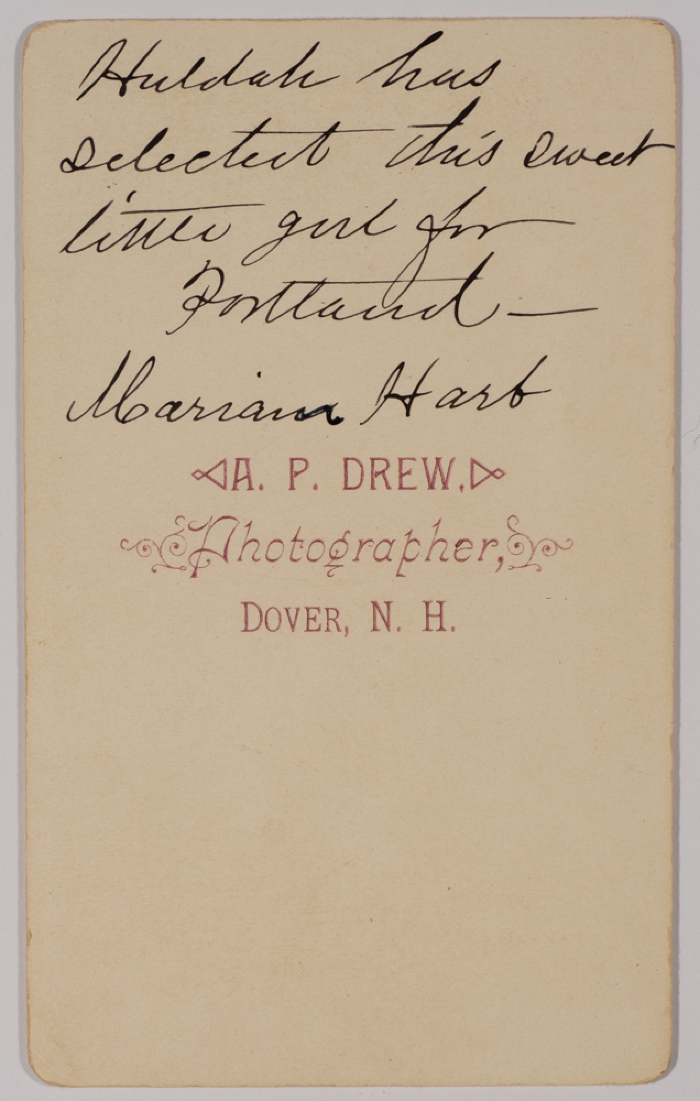 Huldah has
selected this sweet
little girl for
Portland —
Marian Hart
A. P. DREW.
Photographer,
DOVER, N. H.